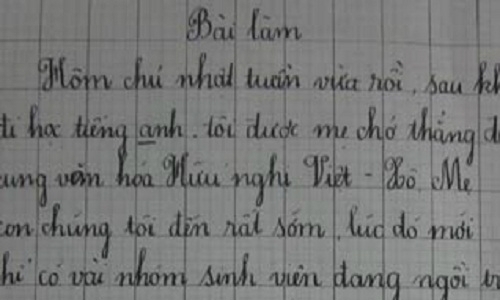 Bài làm
Hôm chủ nhật tuần vừa rồi, sau
đi học tiếng anh, tôi được mẹ chở thẳng
ung văn hóa Hữu nghị Việt - Xô. Mẹ
con chúng tôi đến rất sớm, lúc đó mới
hỉ có vài nhóm sinh viên đang ngồi